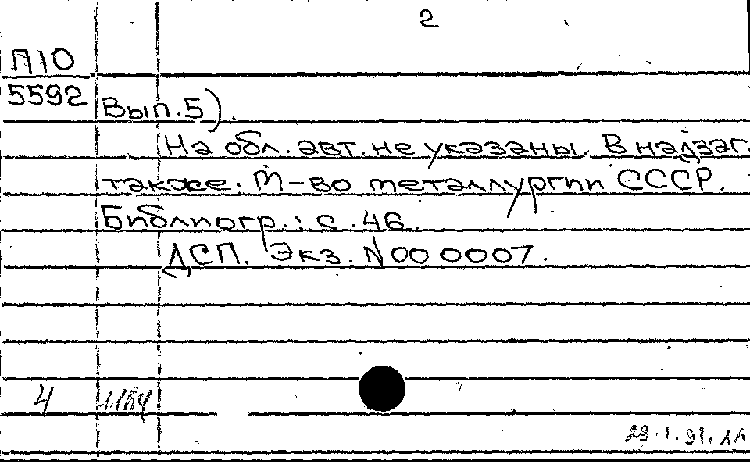 2
П10
5592 Вып. 5).
На обл. авт. не указаны. В надзаг.
также: М-во металлургии СССР.
Библиогр.: с. 46.
ДСП. Экз. N 000007.
4